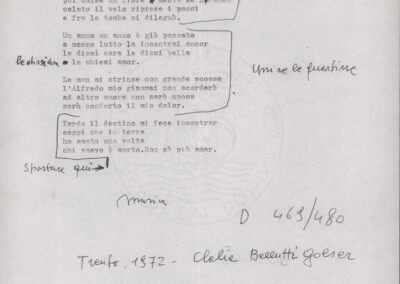 calato il velo riprese i passi
e fra le tombe si dileguò.
Un anno un anno è già passato
a mezzo lutto la incontrai ancor
le dissi cara le dissi bella
le chiesi amor.
Unire le quartine
La man mi strinse con grande mossa
l'Alfredo mio giammai non scorderò
ad altro amore non sarò sposa
sarà conforto il mio dolor.
Tardo il destino mi fece incontrar
sappi che in terra
ho amato una volta
chi amavo è morto. Non sò più amar.
Spostare qui
musica
D 469/480
Trento, 1972 - Clelia Bellutti Golser